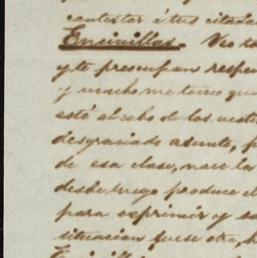 contestar á tus citada
Encinillas. Veo to
y te preocupan respe
y mucho me temo que
esté al cabo de los
desgraciado asunto, p
de esa clase, nace la
desde luego produce el
para exprimir y sa
situacion fuese otra, h